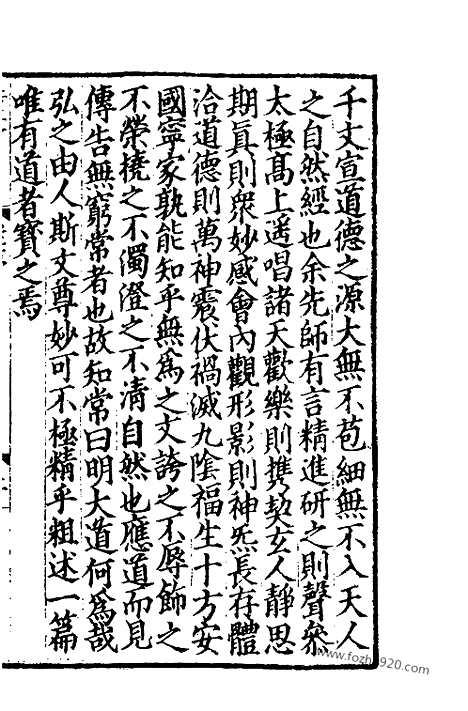 千文宣道德之源大無不苞細無不入天人
之自然經也余先師有言精進研之則聲叅
太極髙上遥唱諸天歡樂則擕契玄人靜思
期真則衆妙感會內觀形影則神炁長存體
洽道德則萬神震伏禍滅九隂福生十方安
國寧家孰能知乎無爲之文誇之不辱飾之
不榮橈之不濁澄之不清自然也應道而見
傳告無窮常者也故知常曰明大道何爲哉
弘之由人斯文尊妙可不極精乎粗述一篇
唯有道者寶之焉
www.fozhu920.com